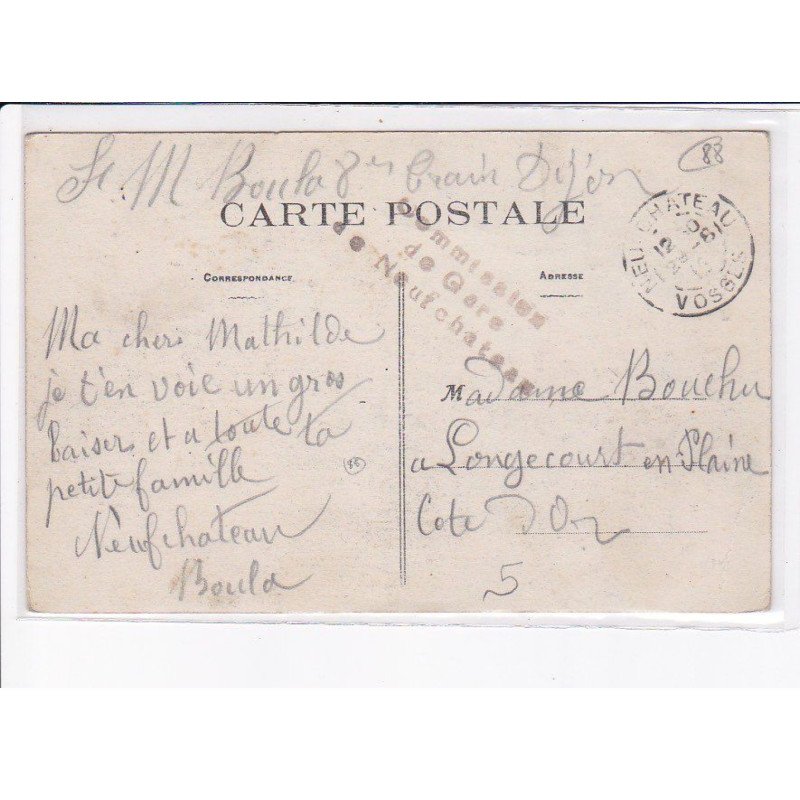 F M Boula 8 em train Dijon
88
CARTE POSTALE
NEUFCHATEAU
VOSGES
Commission
de Gare
de Neufchateau
CORRESPONDANCE
ADRESSE
Ma cher Mathilde
je t'en voie un gros
baiser et a toute ta
petite famille
Neufchateau
Boula
Madame Bouchu
a Longecourt en Plaine
Cote d'Or
5